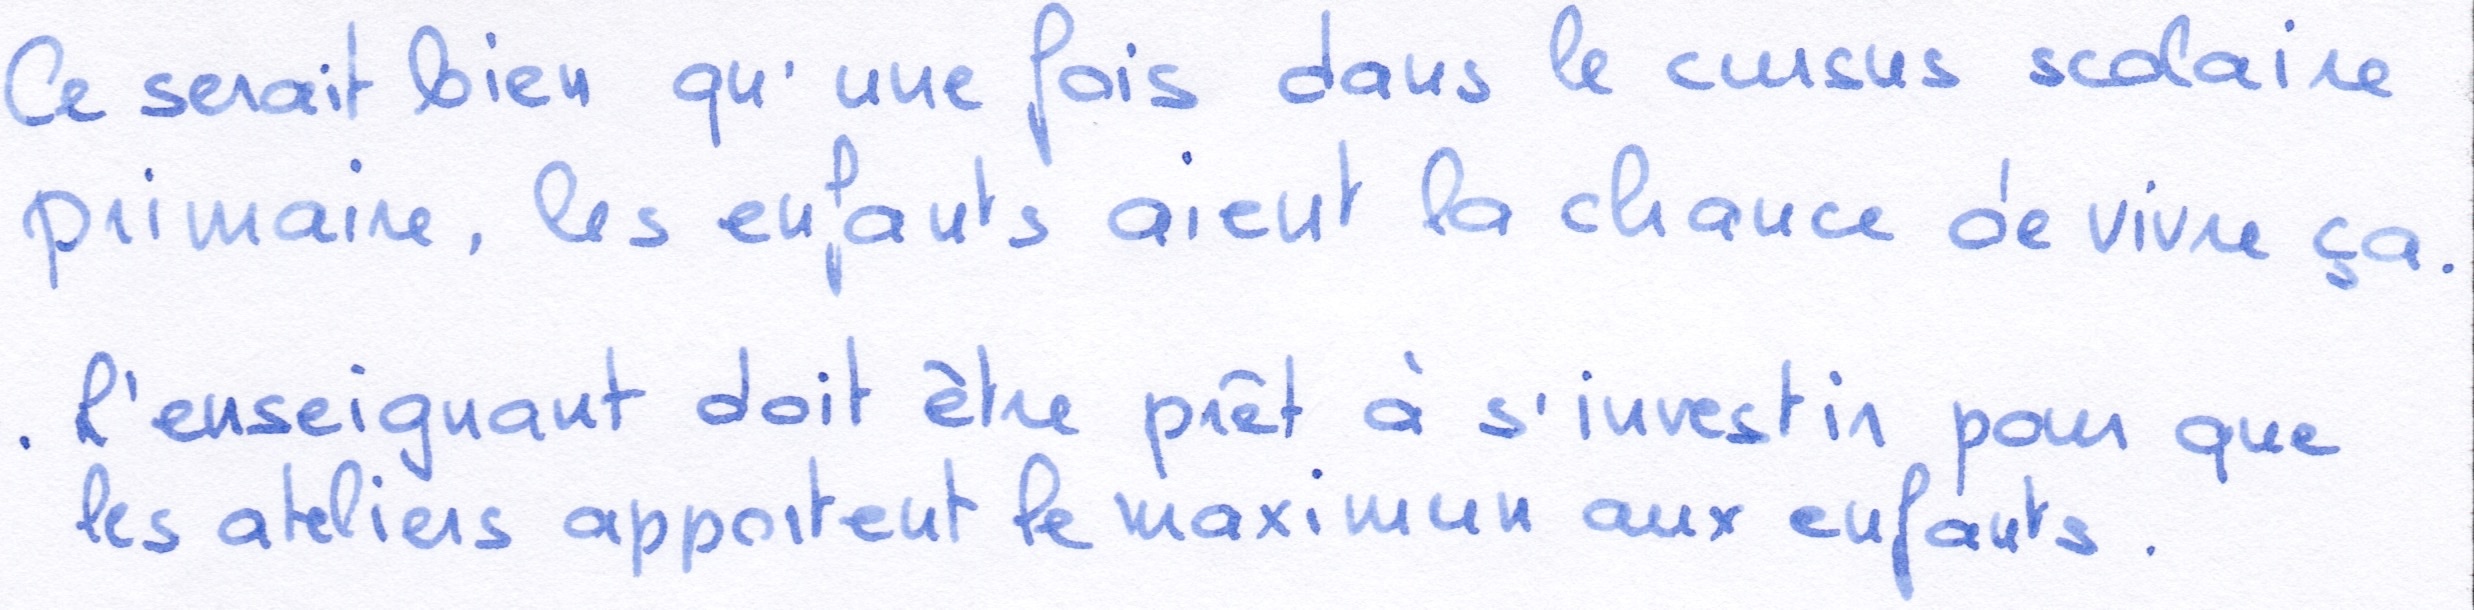 Ce serait bien qu'une fois dans le cursus scolaire
primaire, les enfants aient la chance de vivre ça.
. L'enseignant doit être prêt à s'investir pour que
les ateliers apportent le maximun aux enfants.